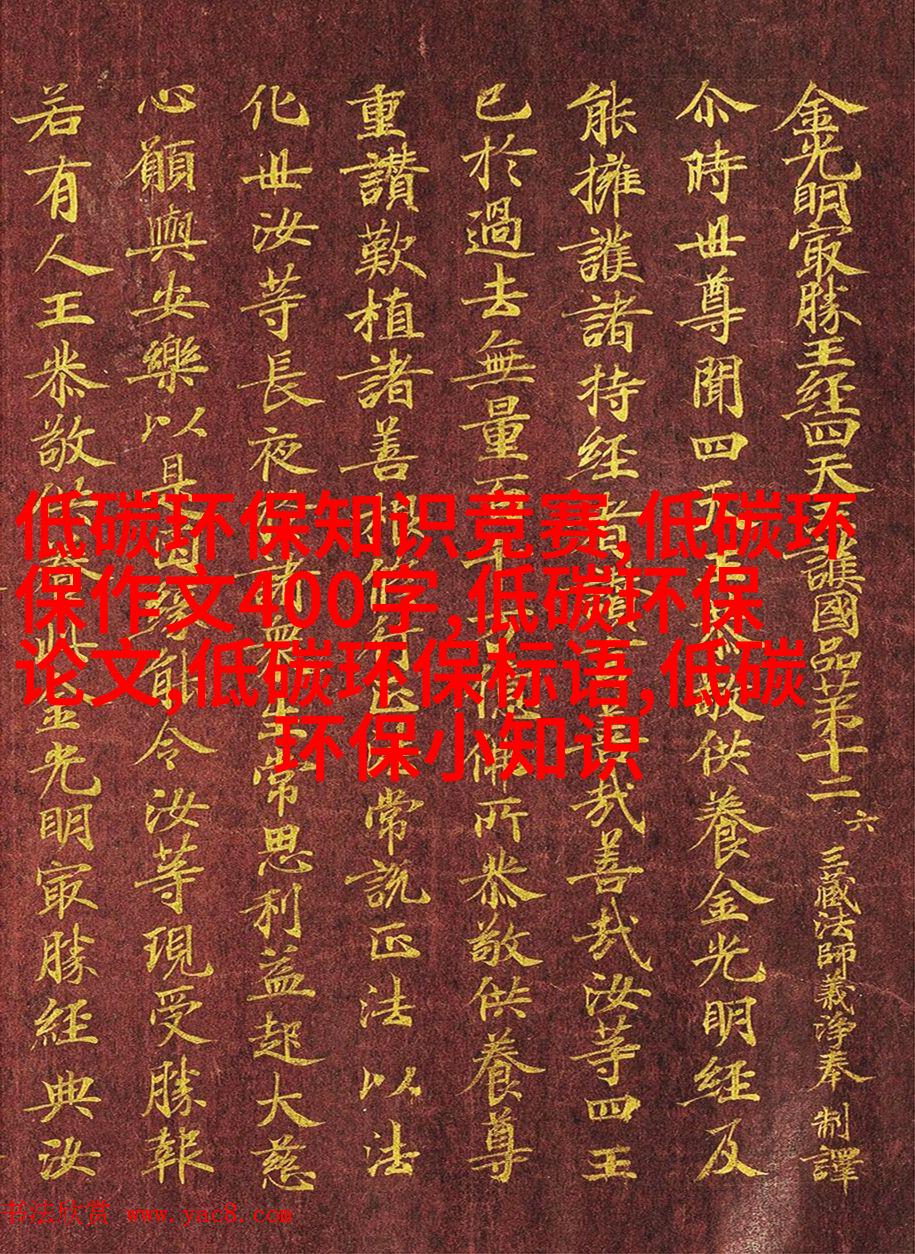 金光明冣勝王經四天王護國品苐十二 六 三藏法師義淨奉 制譯
尒時世尊聞四天王恭敬供養金光明經及
能擁護諸持經者讚言善哉善哉汝等四王
已於過去無量百千万億佛所恭敬供養尊
重讚歎植諸善根修行正法常說正法以法
化世汝等長夜於諸衆生常思利益起大慈
心願與安樂以是因緣 令汝等現受勝報
若有人王恭敬供養 金光明冣勝經典汝
低碳环保知识竞赛,低碳环
保作文400字,低碳环保
论文,低碳环保标语,低碳
环保小知识
书法欣赏 www.yac8.com